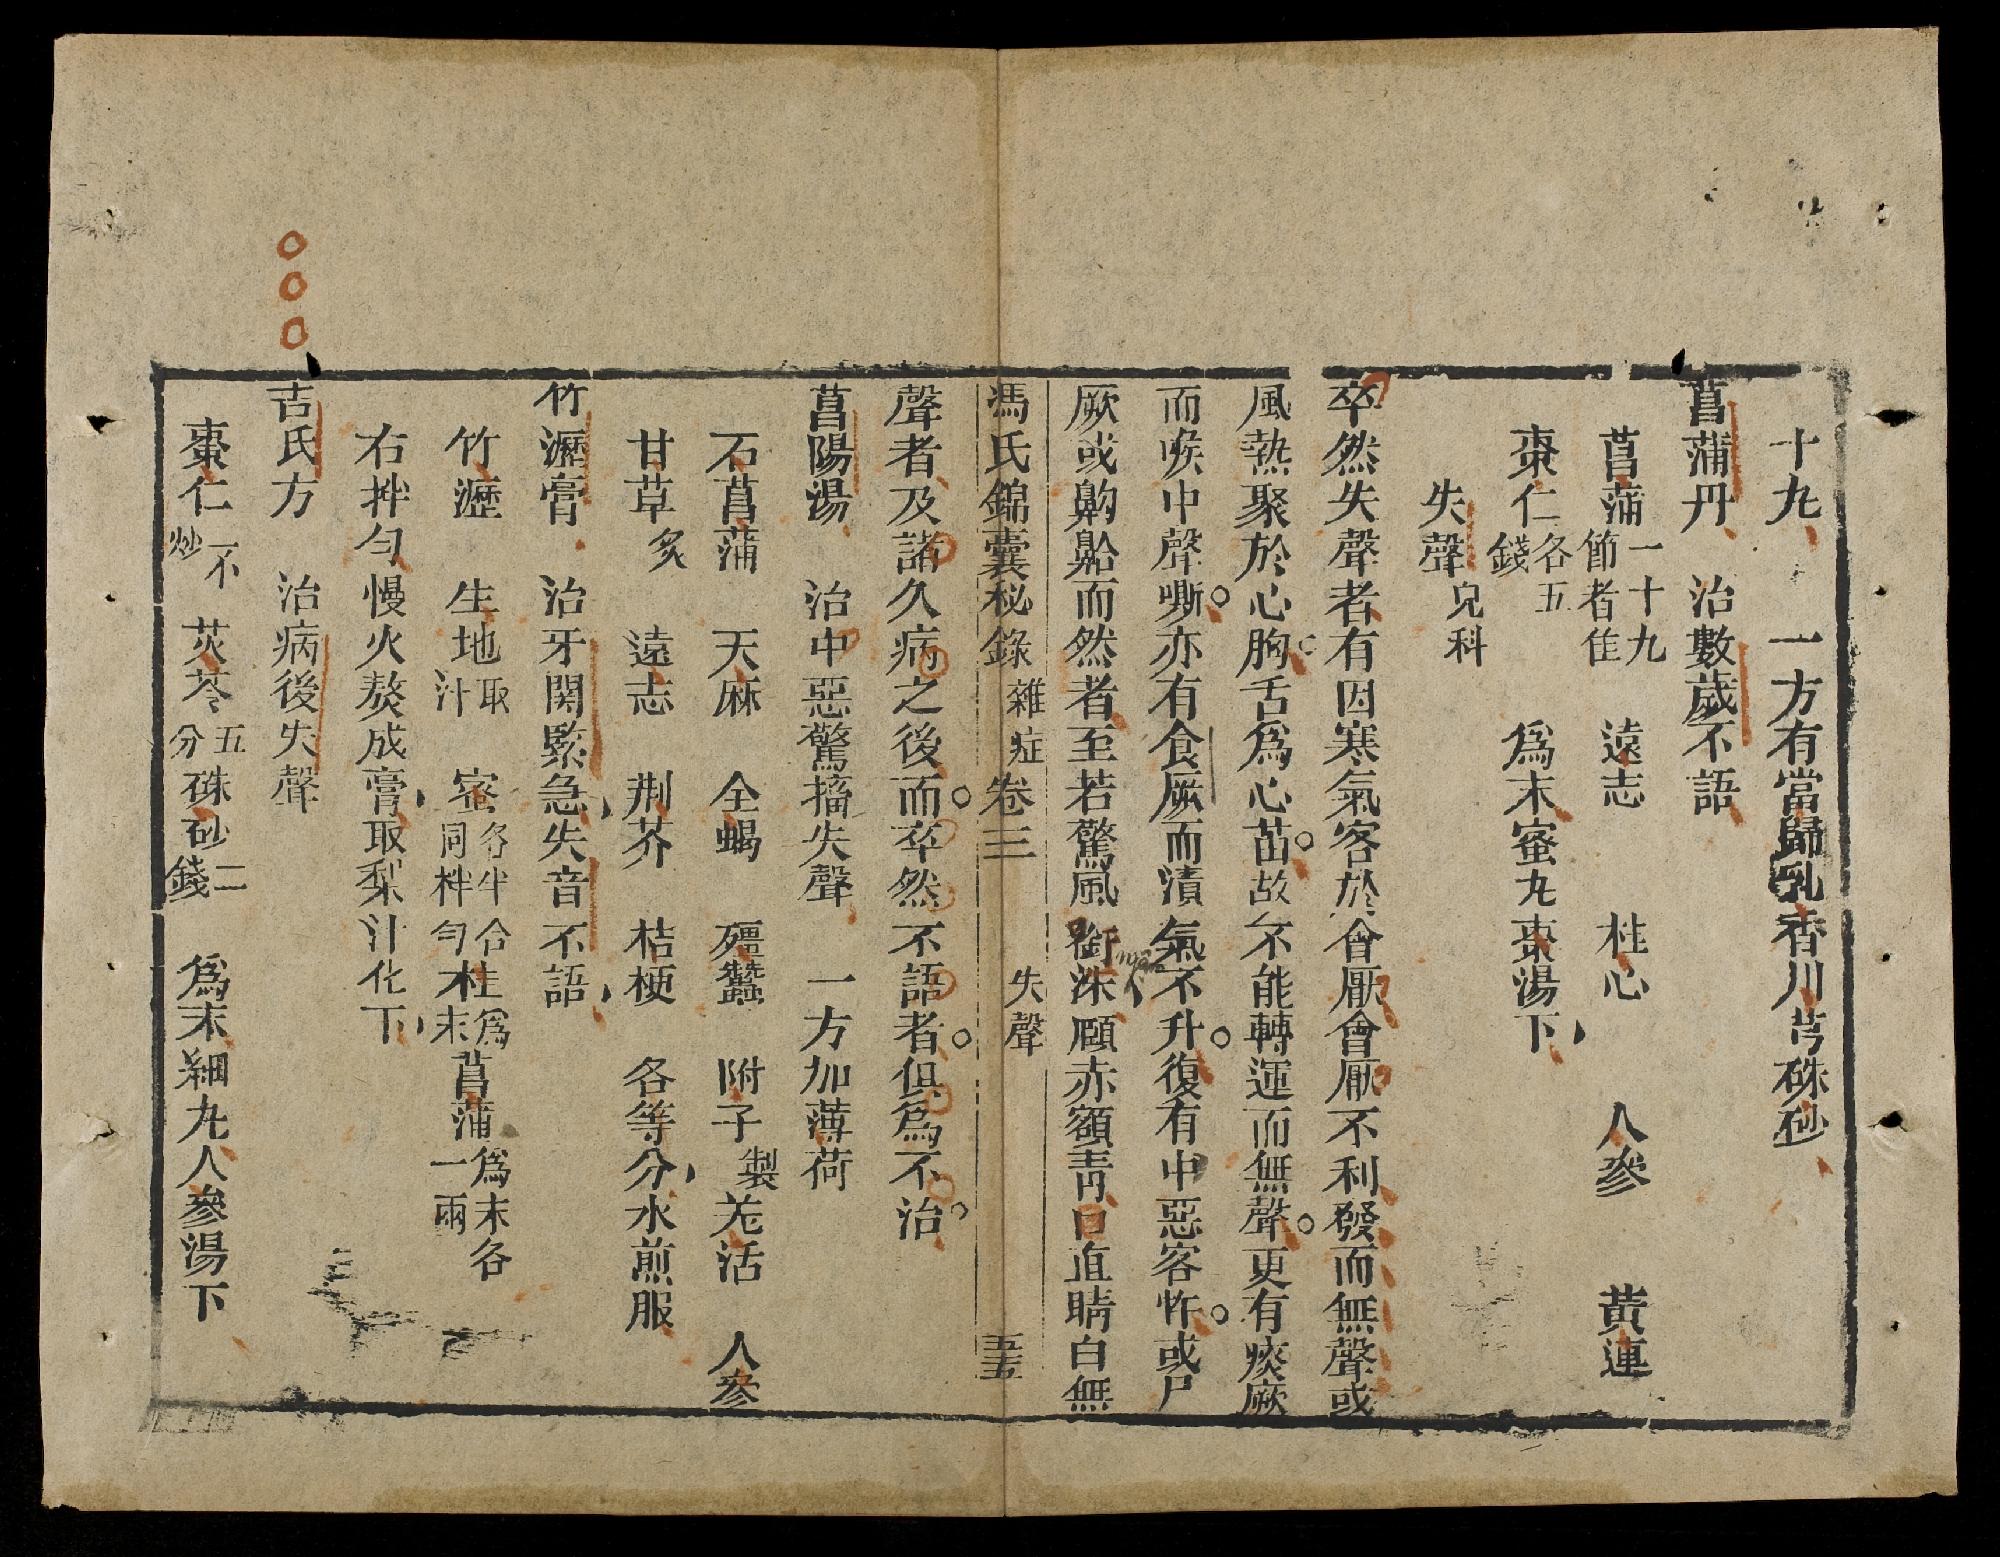 十九 一方有當歸乳香川芎硃砂
菖蒲丹 治數歲不語
菖蒲一十九節者佳 遠志 桂心 人參 黃連
棗仁各五錢 爲末蜜丸棗湯下
失聲兒科
卒然失聲者有因寒氣客於會厭會厭不利發而無聲或
風熱聚於心胸舌爲心苗故不能轉運而無聲更有痰厥
而喉中聲嘶亦有食厥而漬氣不升復有中惡客忤或尸
厥或鼾鼾而然者至若驚風銜洙顖赤額青口直睛白無
馮氏錦囊秘錄 雜症卷三 失聲 五五
聲者及諸久病之後而卒然不語者俱爲不治
菖陽湯 治中惡驚搐失聲 一方加薄荷
石菖蒲 天麻 全蝎 殭蠶 附子製 羌活 人參
甘草炙 遠志 荆芥 桔梗 各等分水煎服
竹瀝膏 治牙関緊急失音不語
竹瀝 生地取汁 蜜各半合同拌勻 桂爲末 菖蒲爲末各一兩
右拌勻慢火熬成膏取梨汁化下
吉氏方 治病後失聲
棗仁不炒 茯苓五分 硃砂二錢 爲末糊丸人參湯下